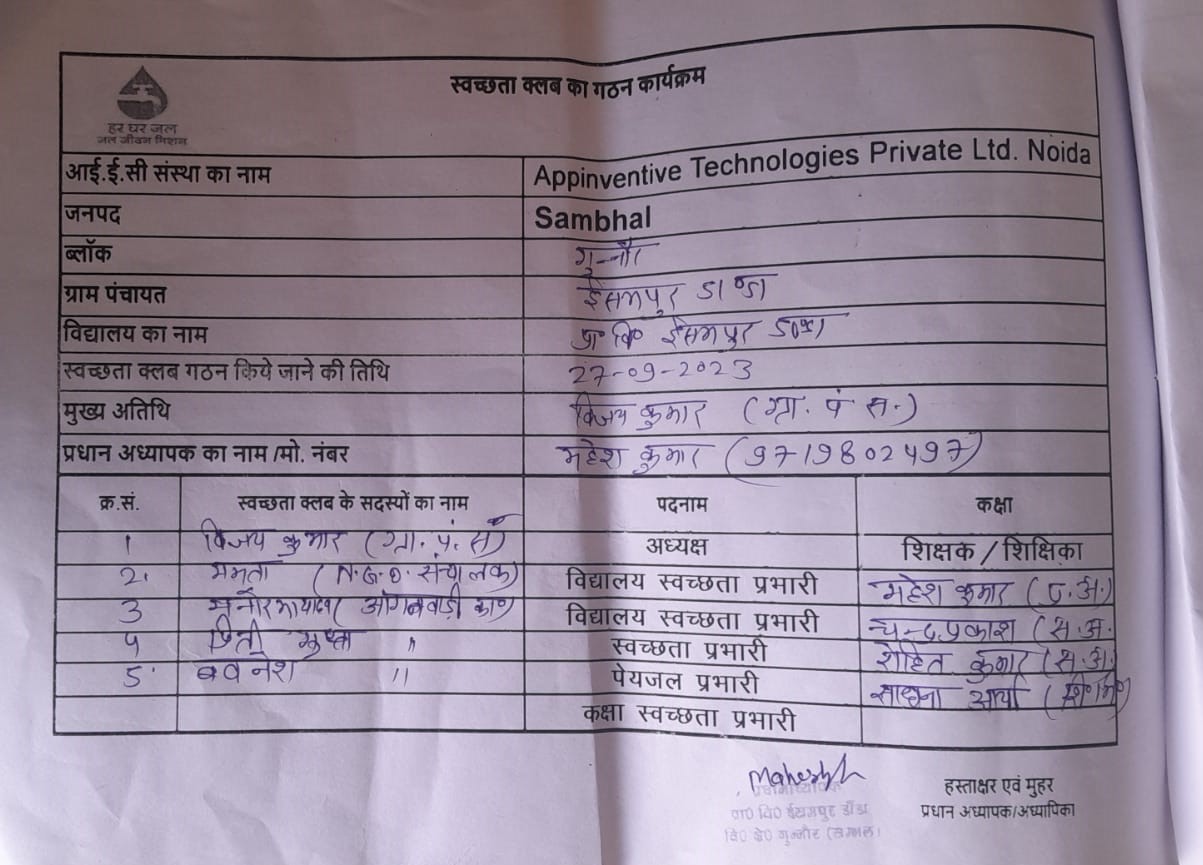 स्वच्छता क्लब का गठन कार्यक्रम
हर घर जल
जल जीवन मिशन
आई.ई.सी संस्था का नाम Appinventive Technologies Private Ltd. Noida
जनपद Sambhal
ब्लॉक गुन्नौर
ग्राम पंचायत ईसमपुर डाण्डा
विद्यालय का नाम प्रा० वि० ईसमपुर डाण्डा
स्वच्छता क्लब गठन किये जाने की तिथि 27-09-2023
मुख्य अतिथि विजय कुमार (ग्रा. पं स.)
प्रधान अध्यापक का नाम /मो. नंबर महेश कुमार (9719802497)
क्र.सं. स्वच्छता क्लब के सदस्यों का नाम पदनाम कक्षा
1 विजय कुमार (ग्रा. पं. स) अध्यक्ष शिक्षक / शिक्षिका
2. ममता (N.G.O. संचालक) विद्यालय स्वच्छता प्रभारी महेश कुमार (प्र.अ.)
3 आंगनवाड़ी का०) विद्यालय स्वच्छता प्रभारी चन्द्रप्रकाश (स.अ.
4 " स्वच्छता प्रभारी रोहित कुमार (स.अ.)
5 बवनेश " पेयजल प्रभारी साधना आर्या (शि०मि०)
कक्षा स्वच्छता प्रभारी
Mahesh
प्रधानाध्यापक
प्रा० वि० ईसमपुर डाँडा
वि० क्षे० गुन्नौर (सम्भल)
हस्ताक्षर एवं मुहर
प्रधान अध्यापक/अध्यापिका